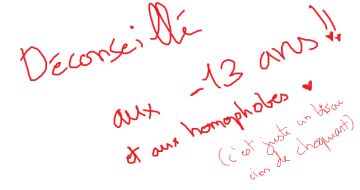 Déconseillé
aux -13 ans!!
et aux homophobes ♥
(c'est juste un bisou
rien de choquant)